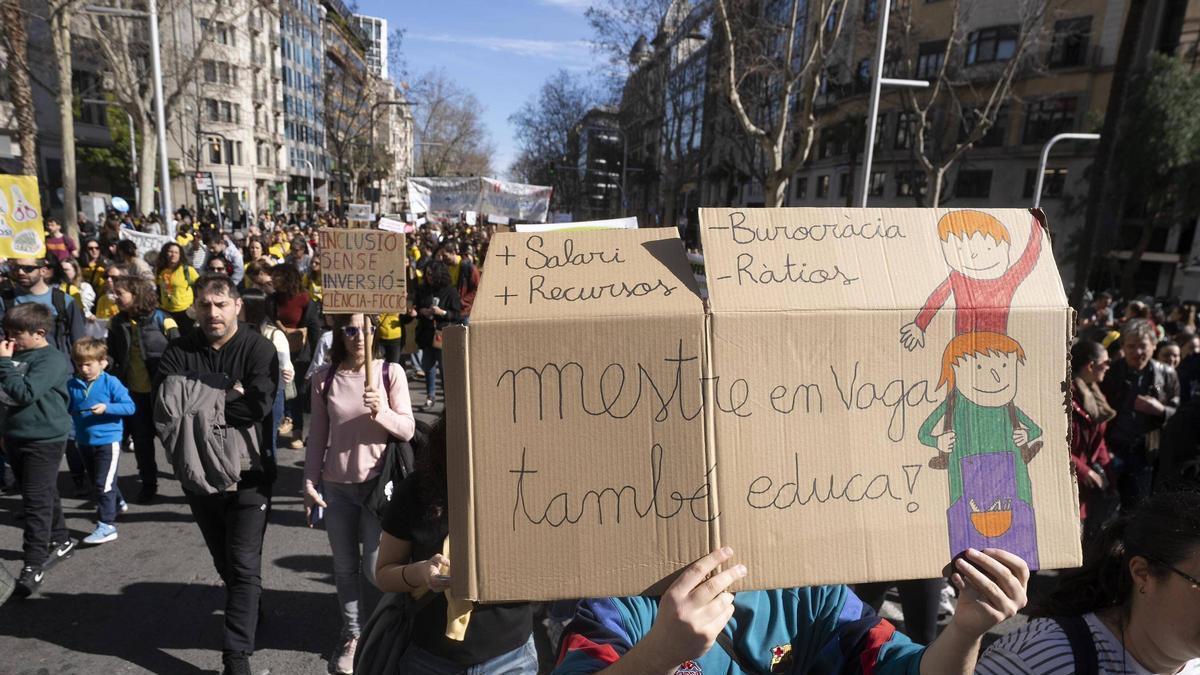 INCLUSIÓ
SENSE
INVERSIÓ =
CIÈNCIA-FICCIÓ
+ Salari
+ Recursos
- Burocràcia
- Ràtios
mestre en Vaga
també educa!